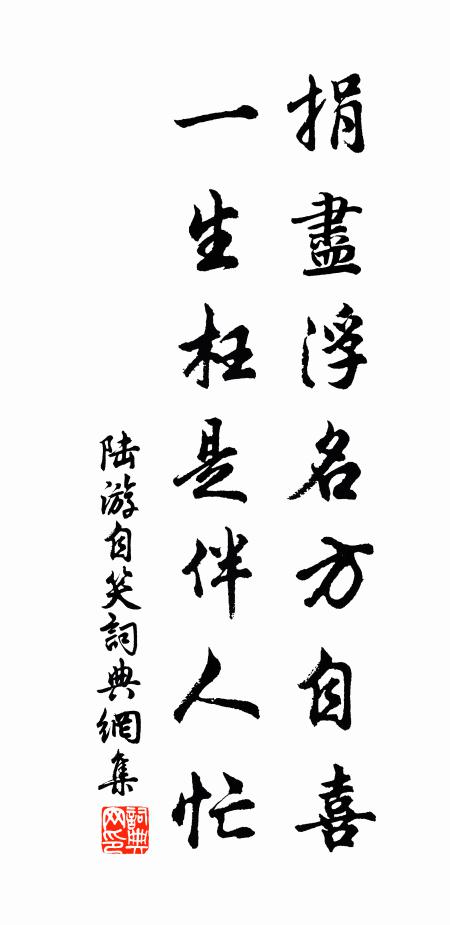 捐盡浮名方自喜
一生枉是伴人忙
陆游自笑詞典網集
詞典网印